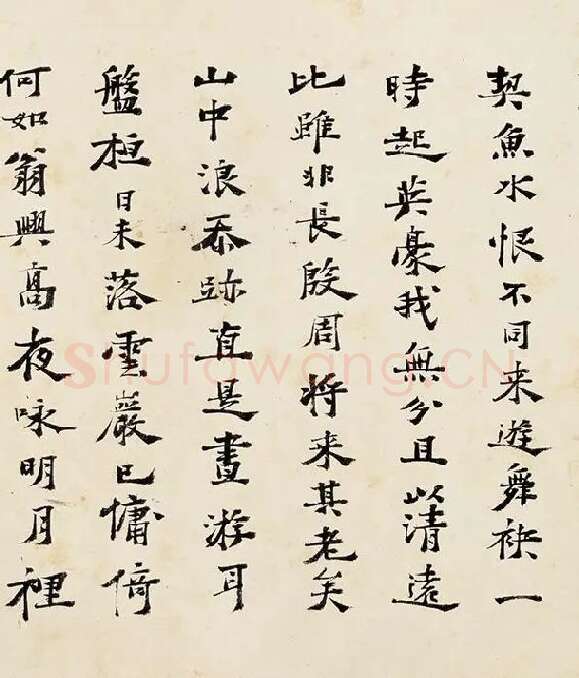 契魚水恨不同来遊舞袂一
時起英豪我無分且以清遠
比雖非長殷周将来其老矣
山中浪忝跡直是晝游耳
盤桓日未落雲巖已慵倚
何如翁興高夜咏明月裡
Shufawang.CN